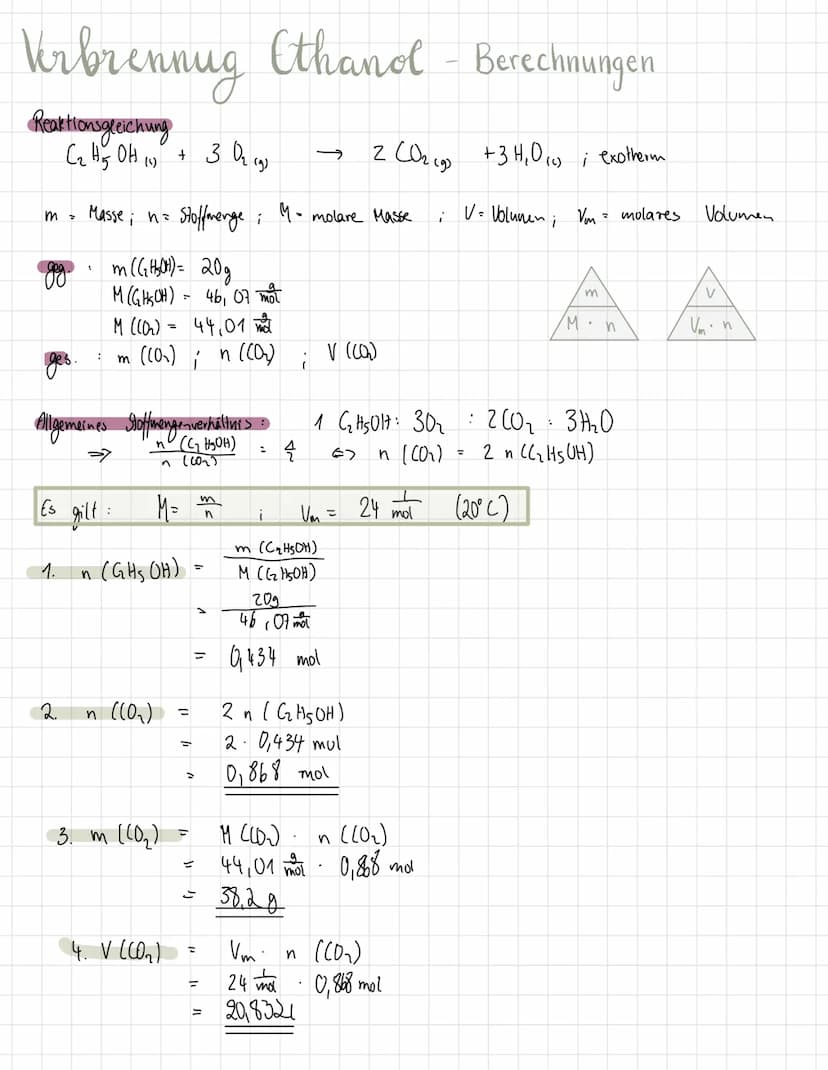 Verbrennug Ethanol - Berechnungen
Reaktionsgleichung
C₂H₅OH (l) + 3 O₂ (g) → 2 CO₂ (g) + 3 H₂O (l) ; exotherm
m = Masse ; n = Stoffmenge ; M = molare Masse ; V = Volumen ; Vm = molares Volumen
geg. : m (C₂H₅OH) = 20g
M (C₂H₅OH) = 46,07 g/mol
M (CO₂) = 44,01 g/mol
ges. : m (CO₂) ; n (CO₂) ; V (CO₂)
m
M · n
V
Vm · n
Allgemeines Stoffmengenverhältnis : 1 C₂H₅OH : 3O₂ : 2CO₂ : 3H₂O
⇒ n (C₂H₅OH) / n (CO₂) = 1/2 <=> n (CO₂) = 2 n (C₂H₅OH)
Es gilt : M = m/n ; Vm = 24 l/mol (20°C)
1. n (C₂H₅OH) = m (C₂H₅OH) / M (C₂H₅OH)
= 20g / 46,07 g/mol
= 0,434 mol
2. n (CO₂) = 2 n (C₂H₅OH)
= 2 · 0,434 mol
= 0,868 mol
3. m (CO₂) = M (CO₂) · n (CO₂)
= 44,01 g/mol · 0,868 mol
= 38,2 g
4. V (CO₂) = Vm · n (CO₂)
= 24 l/mol · 0,868 mol
= 20,832 l